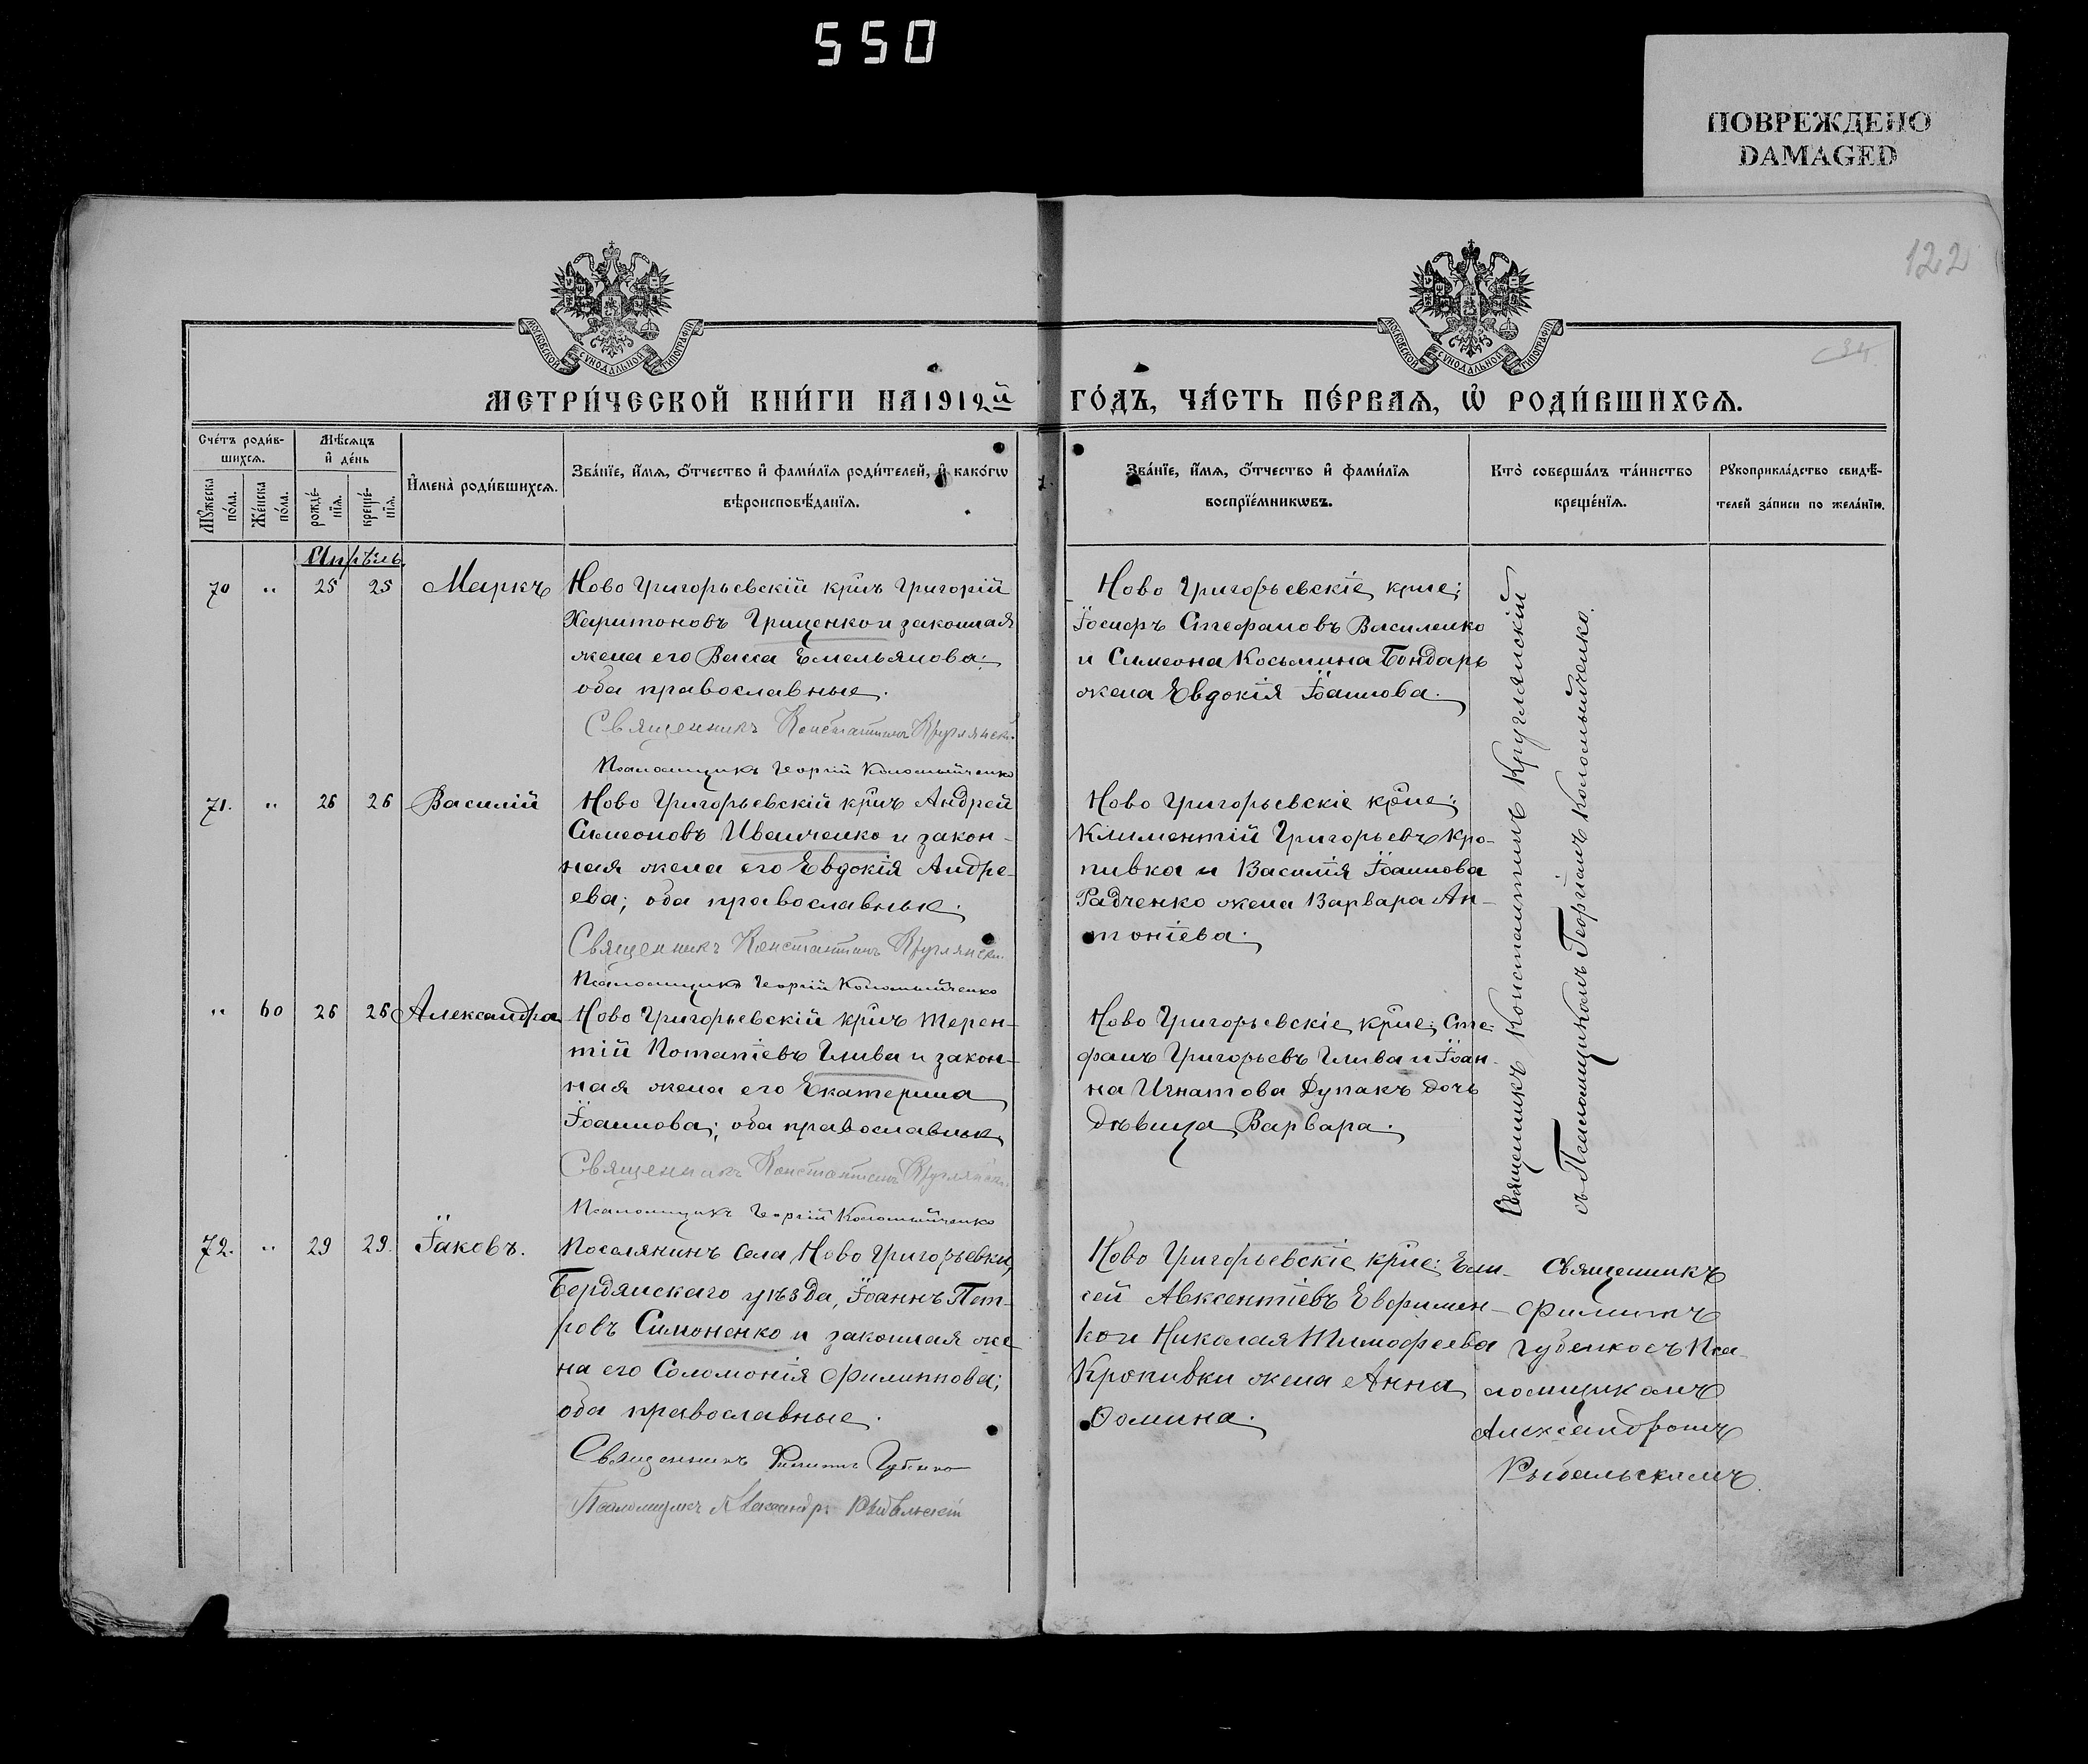 550
ПОВРЕЖДЕНО
DAMAGED
122
МОСКОВСКОЙ СѴНОДАЛЬНОЙ ТИПОГРАФІИ
МОСКОВСКОЙ СѴНОДАЛЬНОЙ ТИПОГРАФІИ
МЕТРИ́ЧЕСКОЙ КНИ́ГИ НА 1912й ГО́ДЪ, ЧА́СТЬ ПЕ́РВАѦ, Ѡ҆ РОДИ́ВШИХСѦ.
Сче́тъ роди́в-
шихсѧ.
Мѣ́сѧцъ
и҆ де́нь
Мꙋ́жеска
по́ла.
Же́нска
по́ла.
рожде́-
нїѧ.
креще́-
нїѧ.
И҆мена̀ роди́вшихсѧ.
Зва́нїе, и҆́мѧ, ѻ҆́тчество и҆ фами́лїѧ роди́телей, и҆ како́гѡ
вѣроисповѣ́данїѧ.
Зва́нїе, и҆́мѧ, ѻ҆́тчество и҆ фами́лїѧ
воспрїе́мникѡвъ.
Кто̀ соверша́лъ та́инство
креще́нїѧ.
Рꙋкоприкла́дство свидѣ́-
телей за́писи по жела́нїю.
Апрѣль
70 " 25 25 Маркъ
Ново Григорьевскій крнъ Григорій
Харитоновъ Гриценко и законная
жена его Васса Емельянова;
оба православные.
Священникъ Константинъ Круглянскій
Псаломщикъ Георгій Коломыйченко
Ново Григорьевскіе крне;
Іосифъ Стефановъ Василенко
и Симеона Косьмина Бондарь
жена Евдокія Іоаннова.
71. " 26 26 Василій
Ново Григорьевскій крнъ Андрей
Симеоновъ Иванченко и закон-
ная жена его Евдокія Андре-
ева; оба православные.
Священникъ Константинъ Круглянскій
Псаломщикъ Георгій Коломыйченко
Ново Григорьевскіе крне;
Климентій Григорьевъ Кро-
пивка и Василія Іоаннова
Радченко жена Варвара Ан-
тоніева.
" 60 26 26 Александра
Ново Григорьевскій крнъ Терен-
тій Потапіевъ Глива и закон-
ная жена его Екатерина
Іоаннова; оба православные
Священникъ Константинъ Круглянскій
Псаломщикъ Георгій Коломыйченко
Ново Григорьевскіе крне; Сте-
фанъ Григорьевъ Глива и Іоан-
на Игнатова Дупакъ дочь
дѣвица Варвара.
Священникъ Константинъ Круглянскій
съ Псаломщикомъ Георгіемъ Коломыйченко.
72. " 29 29. Іаковъ.
Поселянинъ села Ново Григорьевки,
Бердянскаго уѣзда, Іоаннъ Пет-
ровъ Симоненко и законная же
на его Соломонія Филиппова;
оба православные.
Священникъ Филиппъ Губенко
Псаломщикъ Александръ Рыбальскій
Ново Григорьевскіе крне: Ели-
сей Авксентіевъ Евфимен-
ко и Николая Тимофеева
Кропивки жена Анна
Ѳомина.
Священникъ
Филиппъ
Губенко съ Пса-
ломщикомъ
Александромъ
Рыбальскимъ.